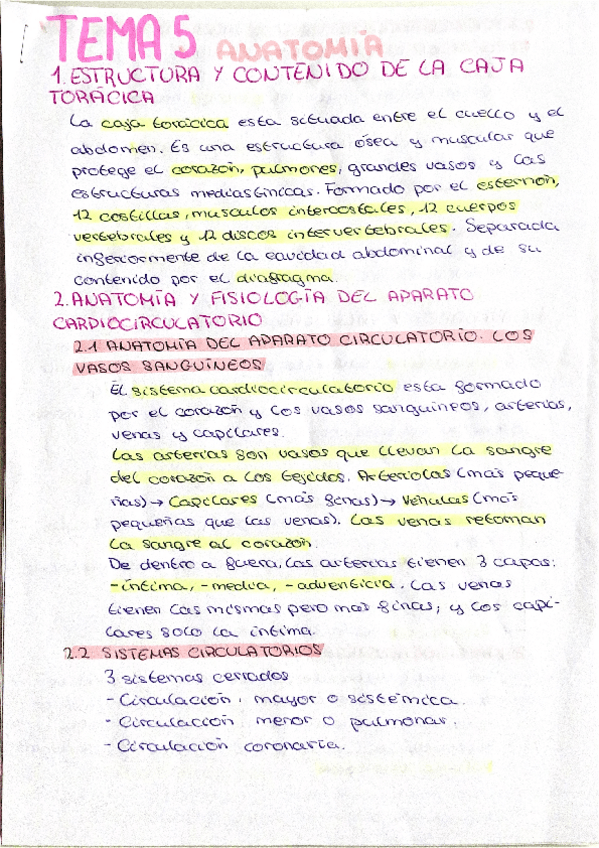 TEMA 5 ANATOMÍA
1. ESTRUCTURA Y CONTENIDO DE LA CAJA
TORÁCICA
La caja torácica esta situada entre el cuello y el
abdomen. Es una estructura ósea y muscular que
protege el corazón, pulmones, grandes vasos y las
estructuras mediastínicas. Formado por el esternón,
12 costillas, musculos intercostales, 12 cuerpos
vertebrales y 12 discos intervertebrales. Separada
inferiormente de la cavidad abdominal y de su
contenido por el diafragma.
2. ANATOMÍA Y FISIOLOGÍA DEL APARATO
CARDIOCIRCULATORIO
2.1 ANATOMÍA DEL APARATO CIRCULATORIO. LOS
VASOS SANGUÍNEOS
El sistema cardiocirculatorio esta formado
por el corazón y los vasos sanguíneos, arterias,
venas y capilares.
Las arterias son vasos que llevan la sangre
del corazón a los tejidos. Arteriolas (más peque-
ñas) → Capilares (más finas) → Vénulas (más
pequeñas que las venas). Las venas retornan
la sangre al corazón.
De dentro a fuera, las arterias tienen 3 capas:
-íntima, -media, -adventicia. Las venas
tienen las mismas pero mas finas; y los capi-
lares solo la íntima.
2.2 SISTEMAS CIRCULATORIOS
3 sistemas cerrados
- Circulación mayor o sistémica.
- Circulación menor o pulmonar.
- Circulación coronaria.